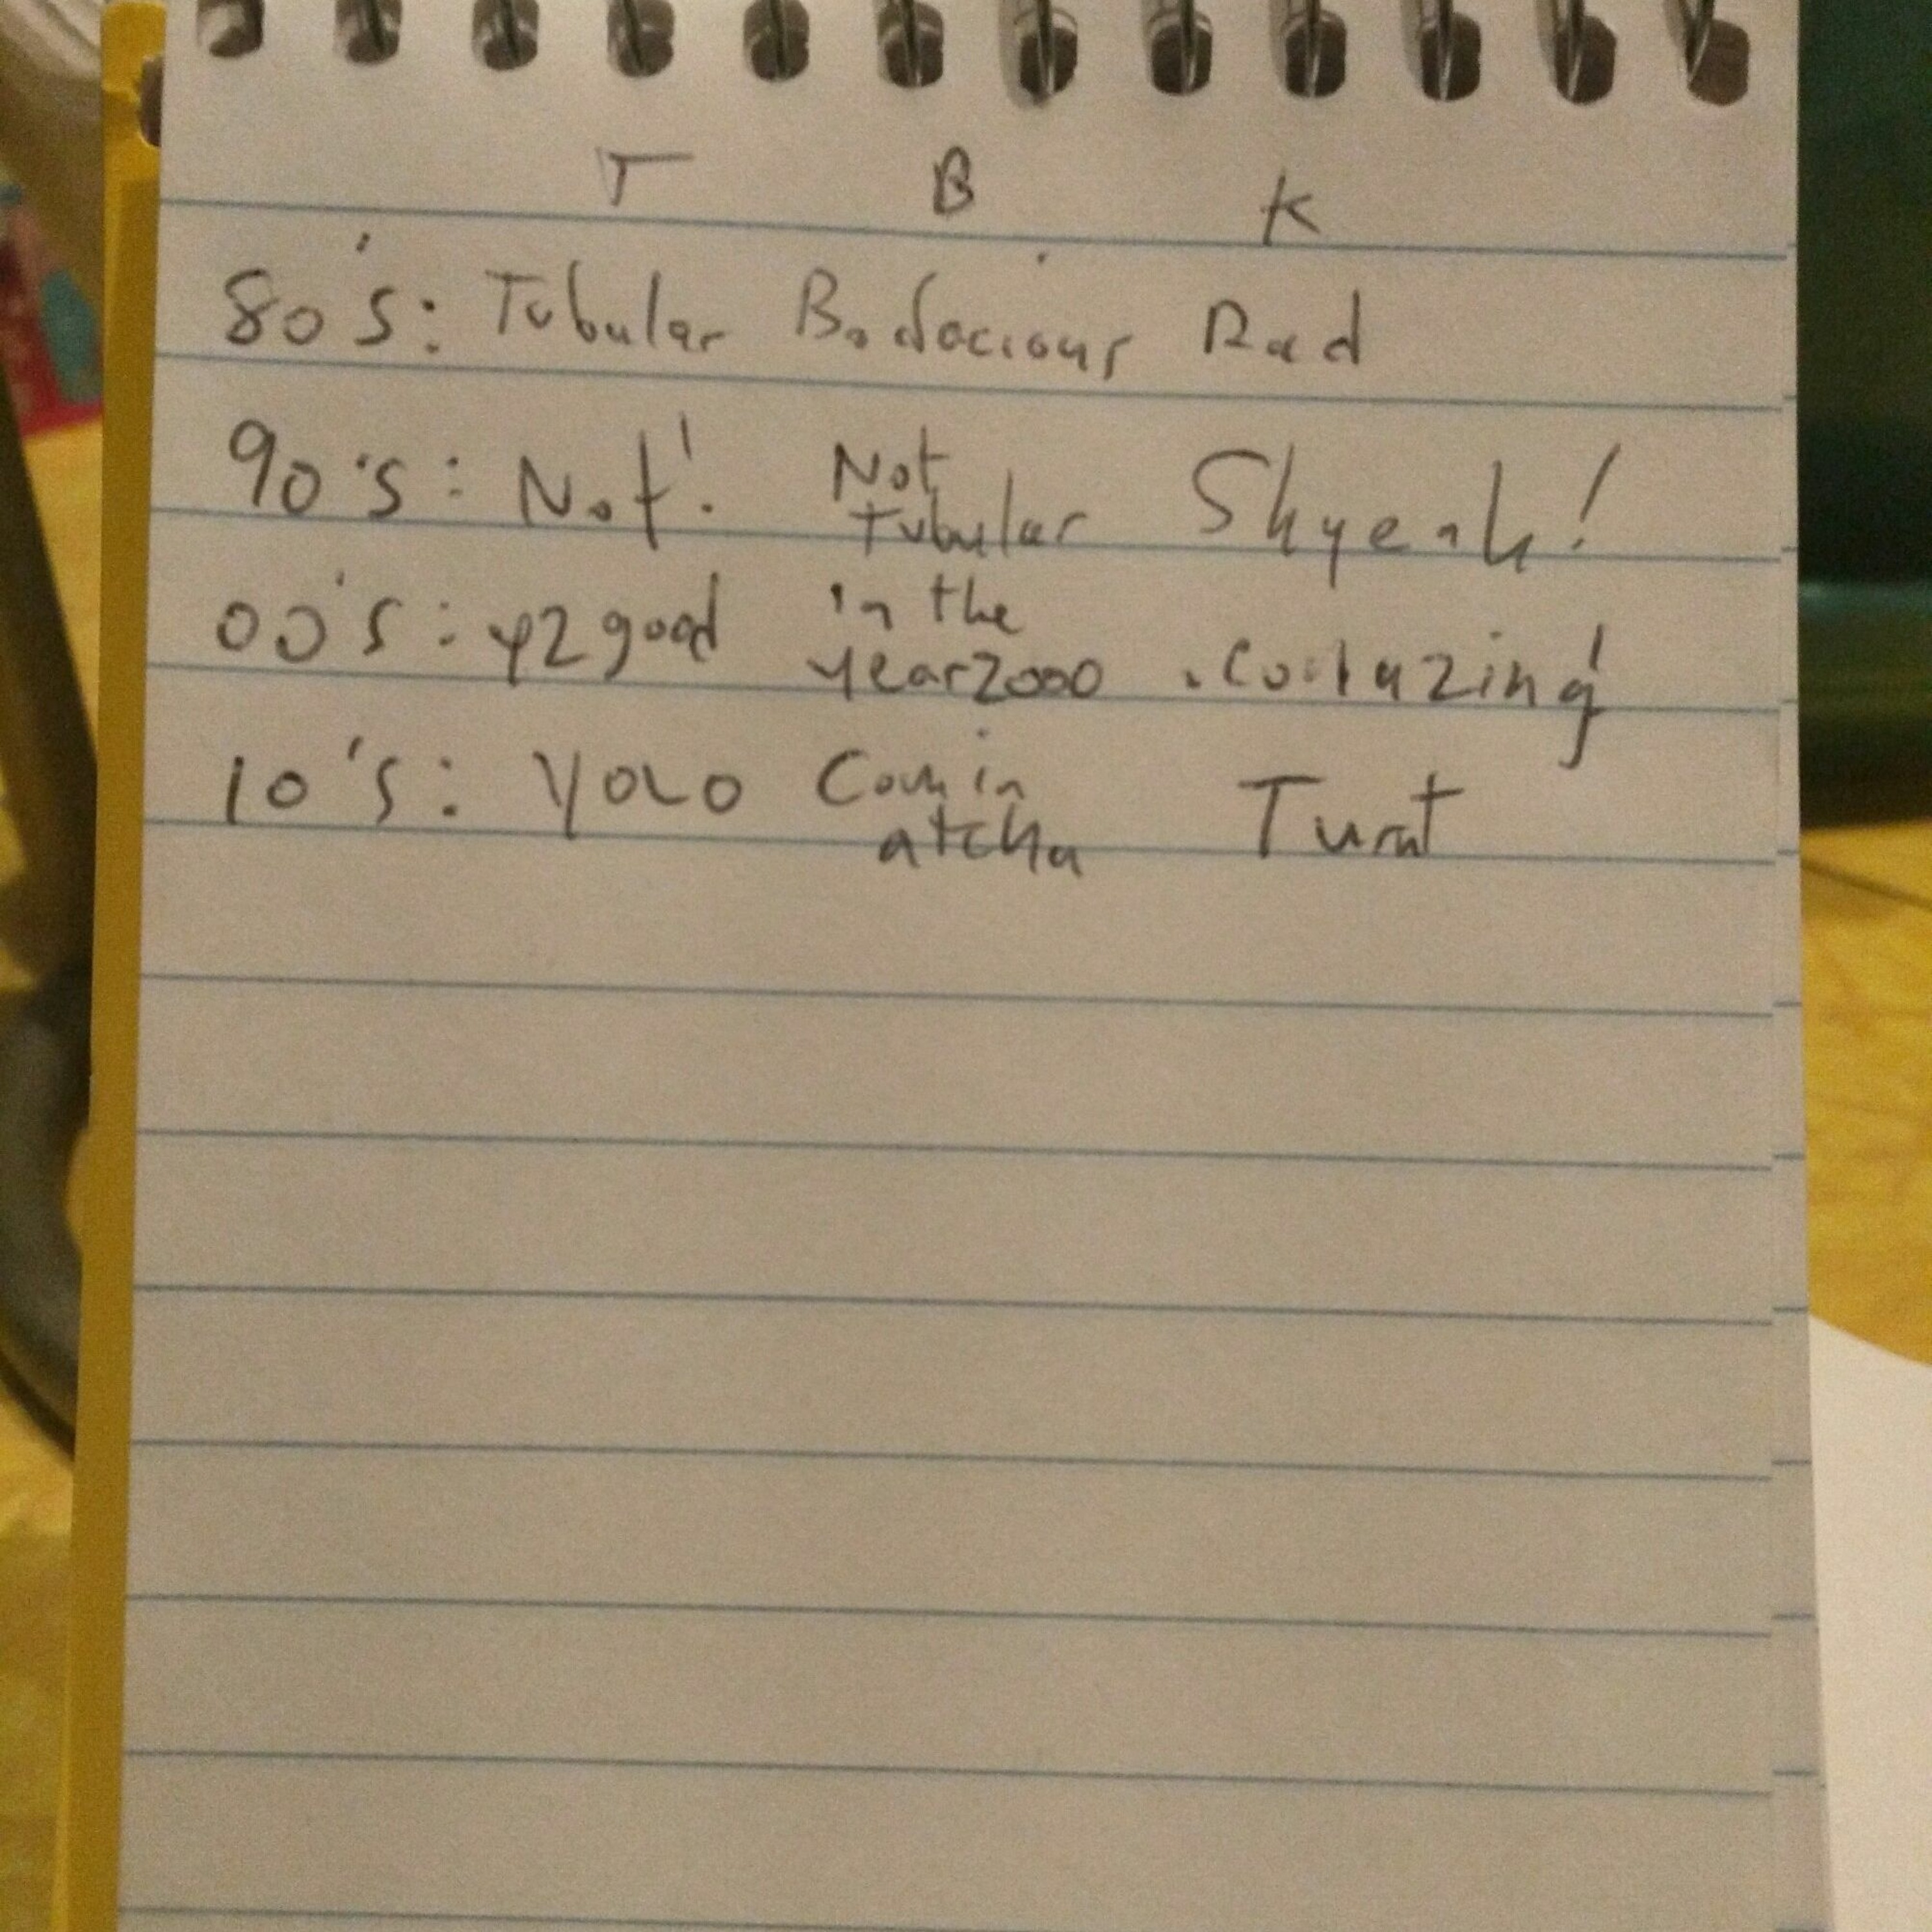 T B K
80's: Tubular Bodacious Rad
90's: Not! Not Shyeah!
tubular
00's: y2good in the
year2000 .Coolazing!
10's: YOLO Comin Turnt
atcha